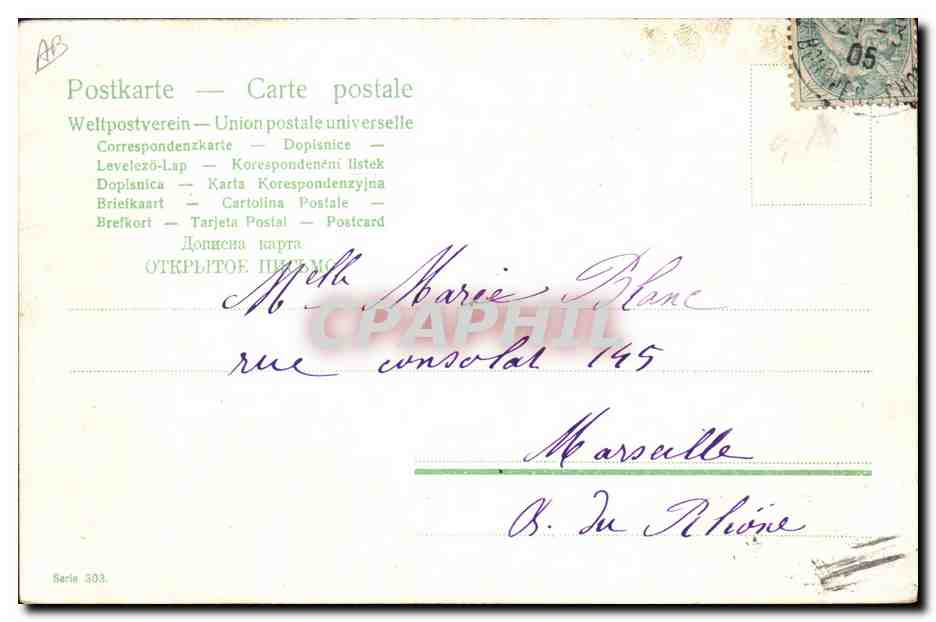 AB
Postkarte — Carte postale
Weltpostverein — Union postale universelle
Correspondenzkarte — Dopisnice —
Levelező-Lap — Korespondenční lístek
Dopisnica — Karta Korespondenzyjna
Briefkaart — Cartolina Postale —
Brefkort — Tarjeta Postal — Postcard
Дописна карта
ОТКРЫТОЕ ПИСЬМО
Melle Marie Blanc
CPAPHIL
rue consolat 145
Marseille
B. du Rhône
Serie 303.
05